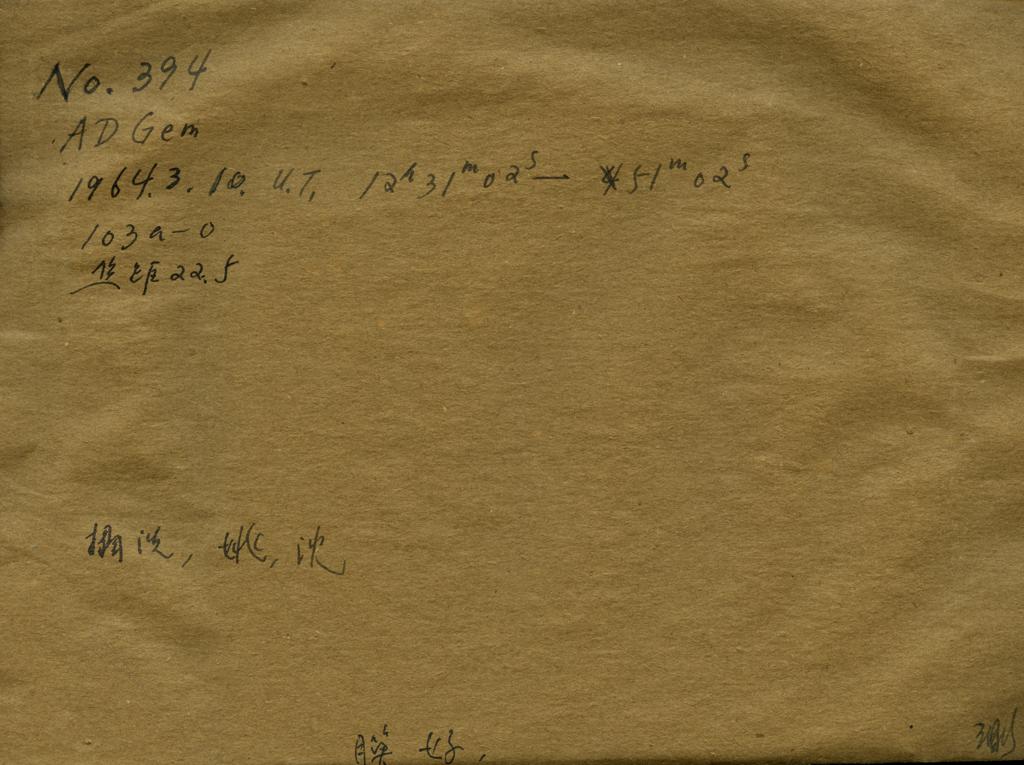 No. 394
AD Gem
1964.3.10. U.T. 12ʰ31ᵐ02ˢ — 51ᵐ02ˢ
103a-O
焦距22.5
摄洗, 姚, 沈
好.